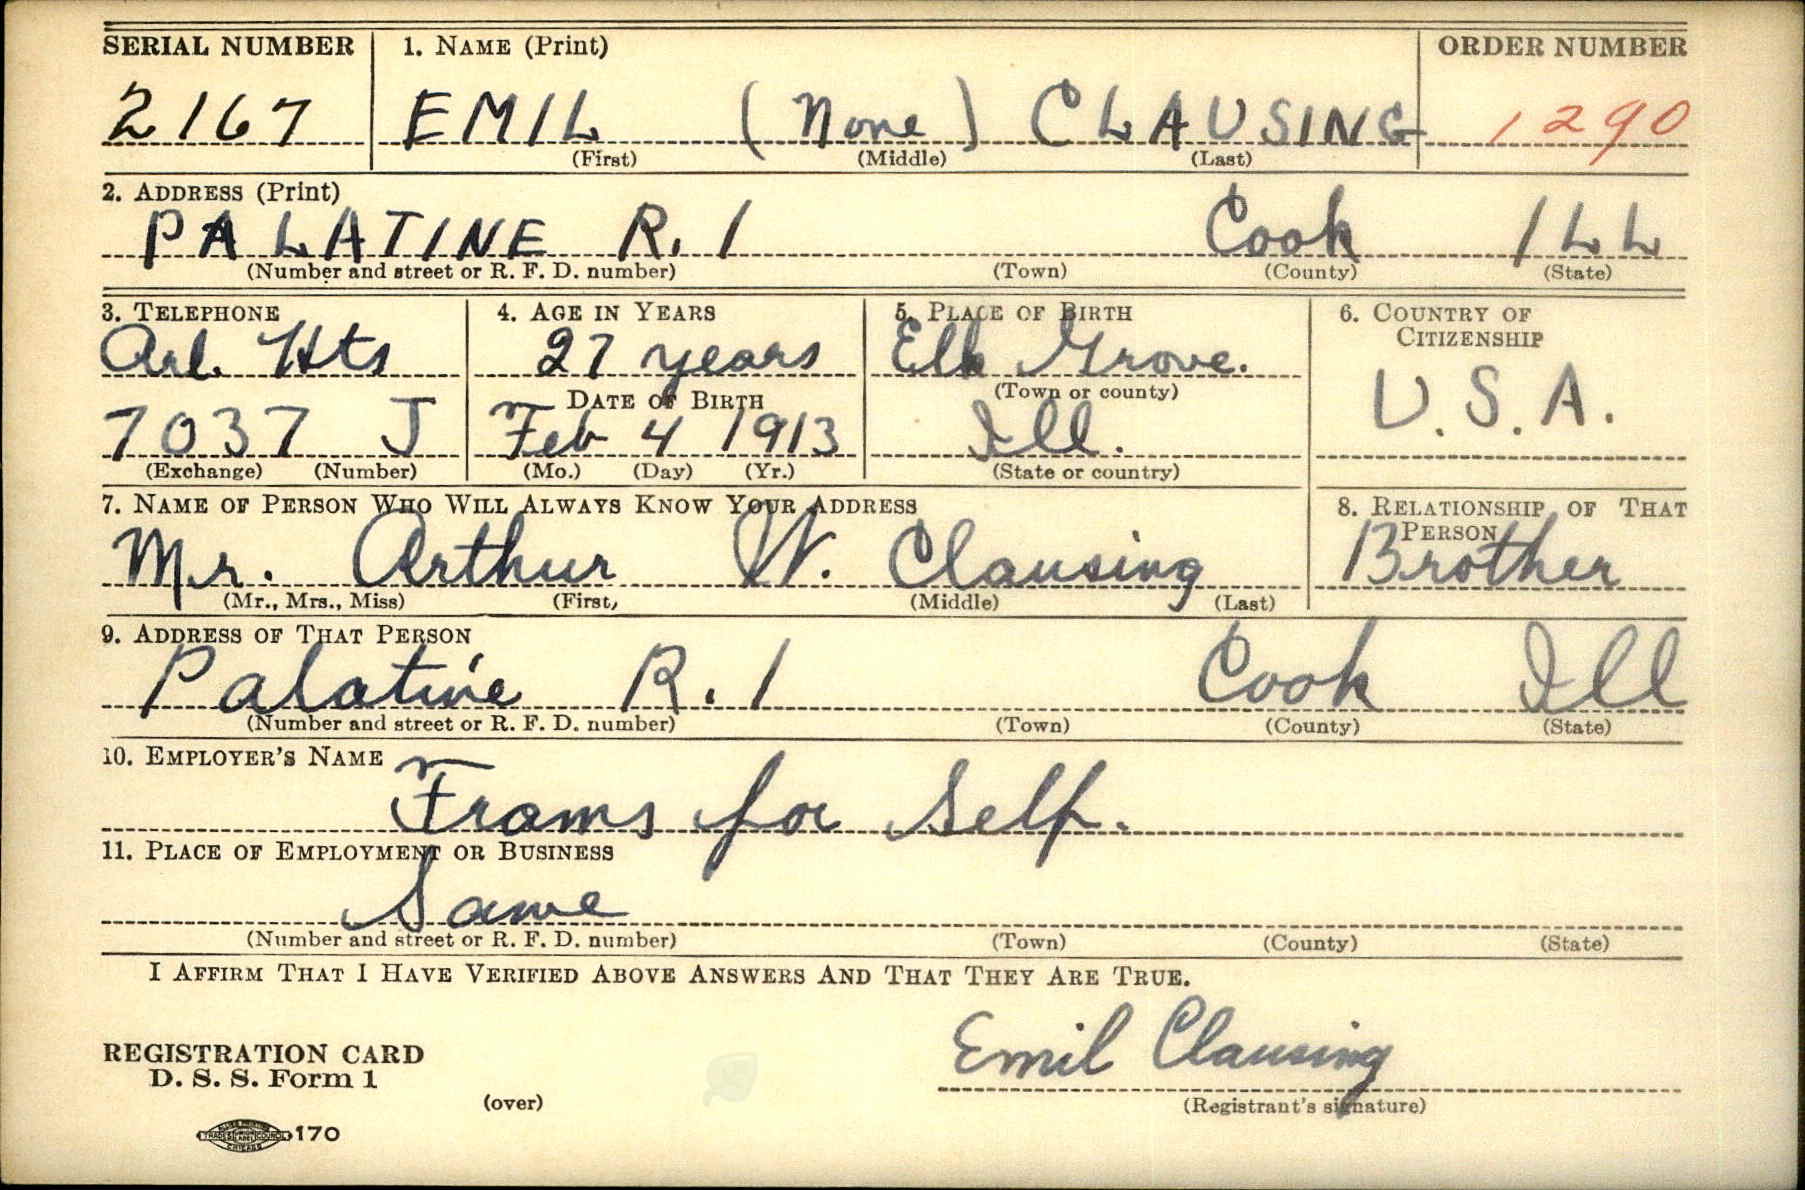 SERIAL NUMBER 1. NAME (Print) ORDER NUMBER
2167 EMIL (None) CLAUSING 1290
(First) (Middle) (Last)
2. ADDRESS (Print)
PALATINE R. 1 Cook ILL
(Number and street or R. F. D. number) (Town) (County) (State)
3. TELEPHONE 4. AGE IN YEARS 5. PLACE OF BIRTH 6. COUNTRY OF
CITIZENSHIP
Arl. Hts 27 years Elk Grove.
DATE OF BIRTH (Town or county) U.S.A.
7037 J Feb 4 1913 Ill.
(Exchange) (Number) (Mo.) (Day) (Yr.) (State or country)
7. NAME OF PERSON WHO WILL ALWAYS KNOW YOUR ADDRESS 8. RELATIONSHIP OF THAT
PERSON
Mr. Arthur W. Clausing Brother
(Mr., Mrs., Miss) (First) (Middle) (Last)
9. ADDRESS OF THAT PERSON
Palatine R. 1 Cook Ill
(Number and street or R. F. D. number) (Town) (County) (State)
10. EMPLOYER'S NAME
Frams for Self.
11. PLACE OF EMPLOYMENT OR BUSINESS
Same
(Number and street or R. F. D. number) (Town) (County) (State)
I AFFIRM THAT I HAVE VERIFIED ABOVE ANSWERS AND THAT THEY ARE TRUE.
Emil Clausing
REGISTRATION CARD
D. S. S. Form 1
(over) (Registrant's signature)
170